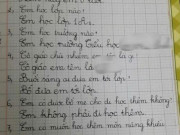 Em học lớp nào?
Em học lớp 1
3. Em học trường nào?
Em học trường Tiểu học
4. Cô giáo chủ nhiệm em tên là gì?
Cô giáo em tên là
5. Buổi sáng ai đưa em tới lớp?
Bố đưa em tới lớp.
6. Em có được bố mẹ cho đi học thêm không?
Em không phải đi học thêm.
Em có muốn học thêm môn năng khiếu